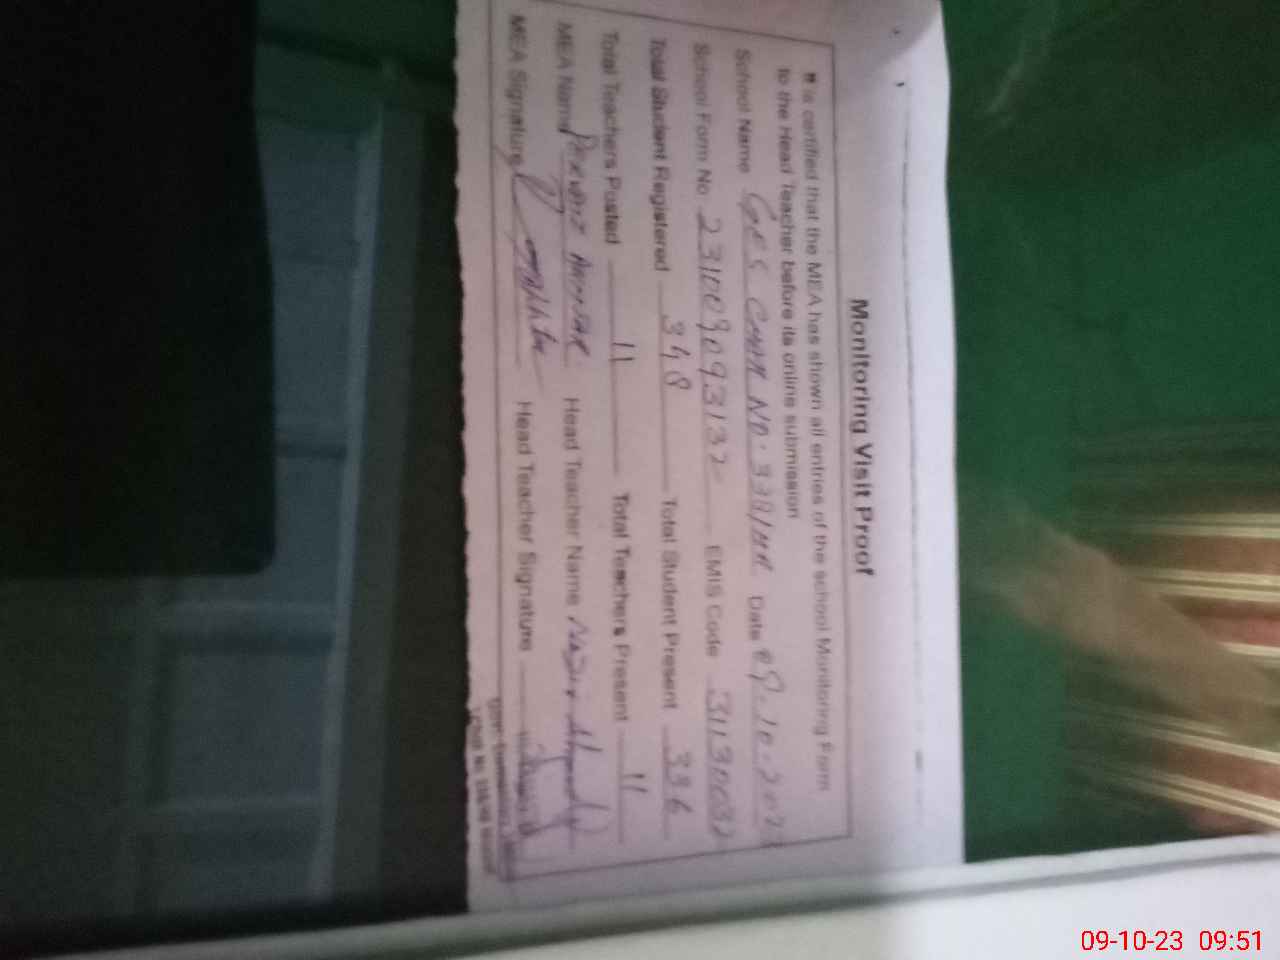 Monitoring Visit Proof
It is certified that the MEA has shown all entries of the school Monitoring Form
to the Head Teacher before its online submission
School Name GES CHAK NO. 338/HR Date 09-10-2023
School Form No. 231009093132 EMIS Code 31130032
Total Student Registered 348 Total Student Present 336
Total Teachers Posted 11 Total Teachers Present 11
MEA Name Pervaiz Head Teacher Name Nazir Ahmad
MEA Signature Head Teacher Signature
09-10-23 09:51